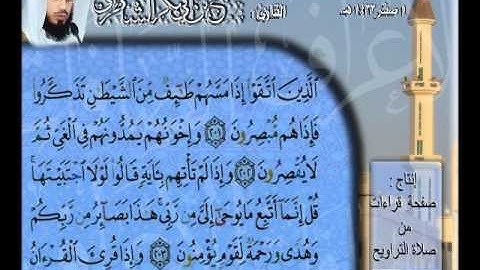 صفر
القارئ :
ٱلَّذِينَ ٱتَّقَوْا۟ إِذَا مَسَّهُمْ طَٰٓئِفٌ مِّنَ ٱلشَّيْطَٰنِ تَذَكَّرُوا۟
فَإِذَا هُم مُّبْصِرُونَ ٢٠١ وَإِخْوَٰنُهُمْ يَمُدُّونَهُمْ فِى ٱلْغَىِّ ثُمَّ
لَا يُقْصِرُونَ ٢٠٢ وَإِذَا لَمْ تَأْتِهِم بِـَٔايَةٍ قَالُوا۟ لَوْلَا ٱجْتَبَيْتَهَا ۚ
قُلْ إِنَّمَآ أَتَّبِعُ مَا يُوحَىٰٓ إِلَىَّ مِن رَّبِّى ۚ هَٰذَا بَصَآئِرُ مِن رَّبِّكُمْ
وَهُدًى وَرَحْمَةٌ لِّقَوْمٍ يُؤْمِنُونَ ٢٠٣ وَإِذَا قُرِئَ ٱلْقُرْءَانُ
إنتاج :
صفحة قراءات
من
صلاة التراويح